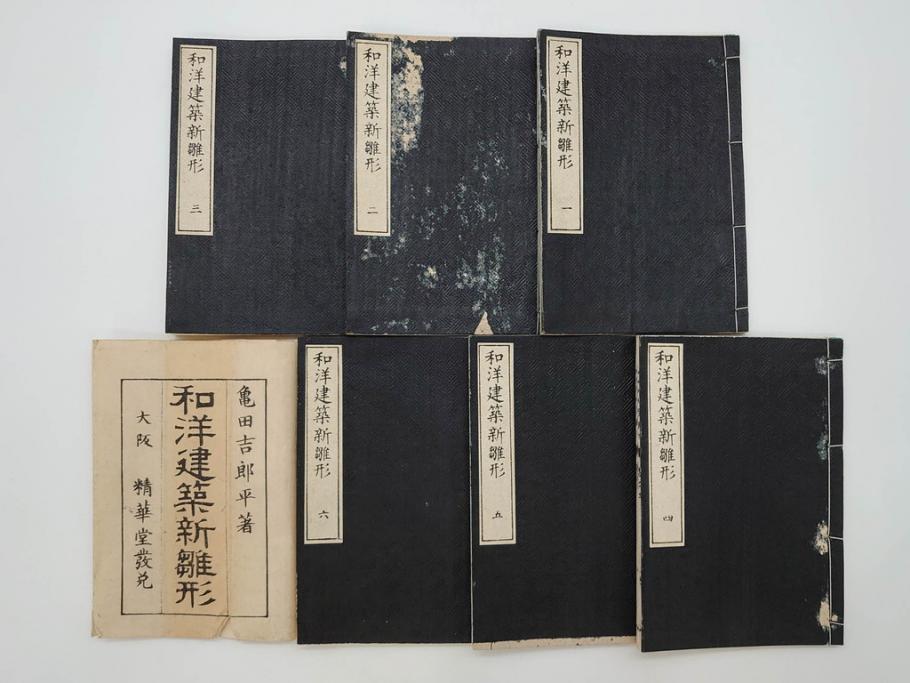 和洋建築新雛形 一
和洋建築新雛形 二
和洋建築新雛形 三
和洋建築新雛形 四
和洋建築新雛形 五
和洋建築新雛形 六
亀田吉郎平著
和洋建築新雛形
大阪 精華堂發兌